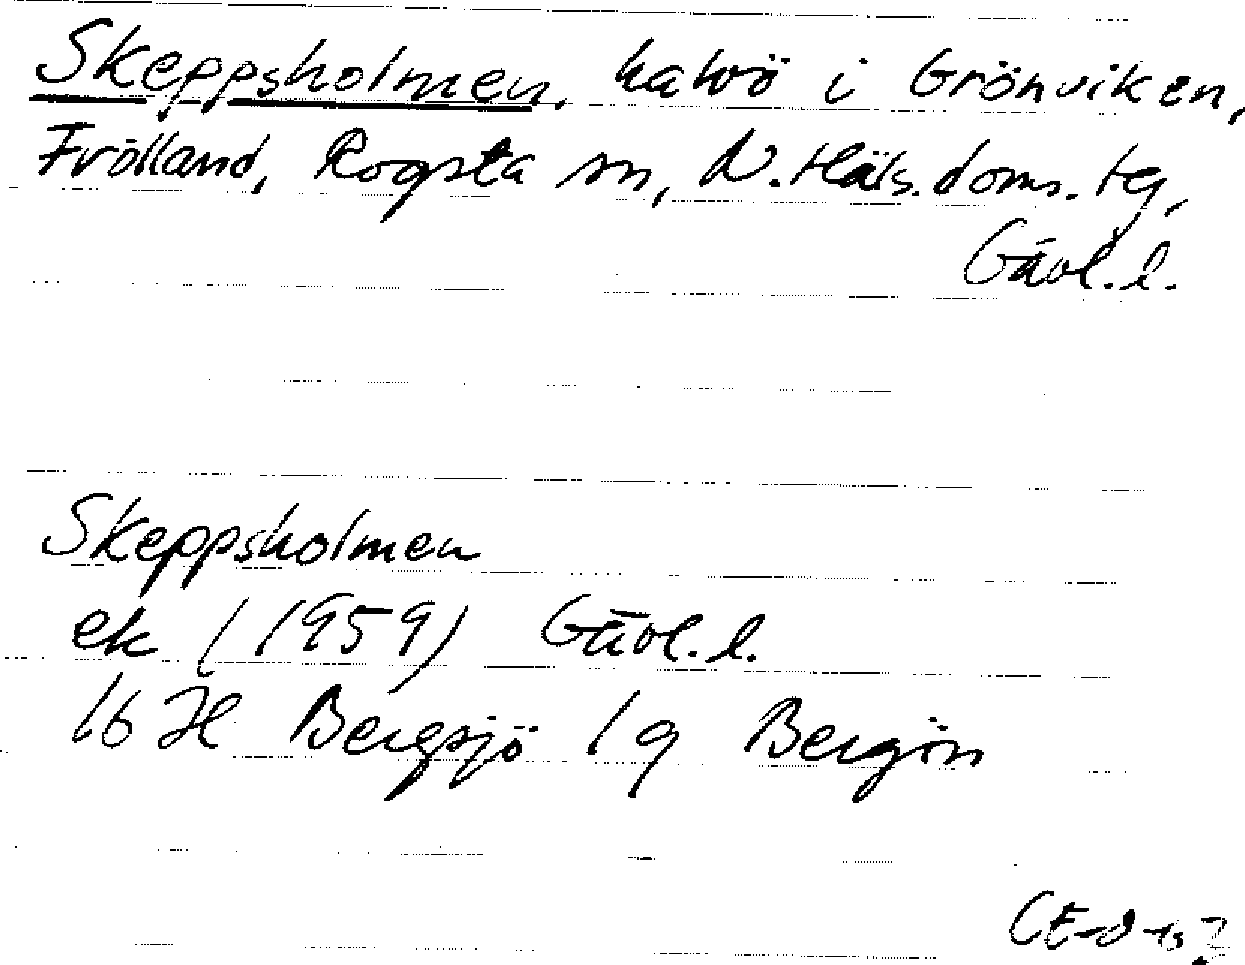 Skeppsholmen, halvö i Grönviken,
Frölland, Rogsta sn, N. Häls. doms. tg,
Gävl. l.
Skeppsholmen
ek (1959) Gävl. l.
16 H Bergsjö 1 g Bergön